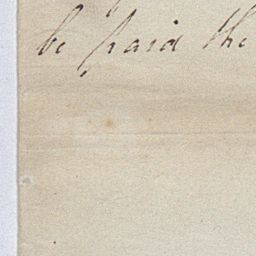 be paid the